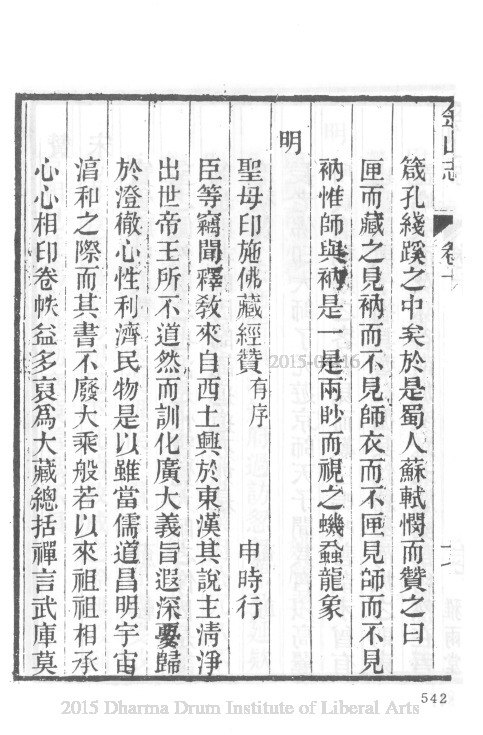 金山志
卷十
箴孔綫蹊之中矣於是蜀人蘇軾憫而贊之曰
匣而藏之見衲而不見師衣而不匣見師而不見
衲惟師與衲是一是兩眇而視之蟣蝨龍象
明
聖母印施佛藏經贊有序 申時行
臣等竊聞釋教來自西土興於東漢其說主清淨
出世帝王所不道然而訓化廣大義旨遐深要歸
於澄徹心性利濟民物是以雖當儒道昌明宇宙
滀和之際而其書不廢大乘般若以來祖祖相承
心心相印卷帙益多裒爲大藏總括禪言武庫莫
542
2015 Dharma Drum Institute of Liberal Arts